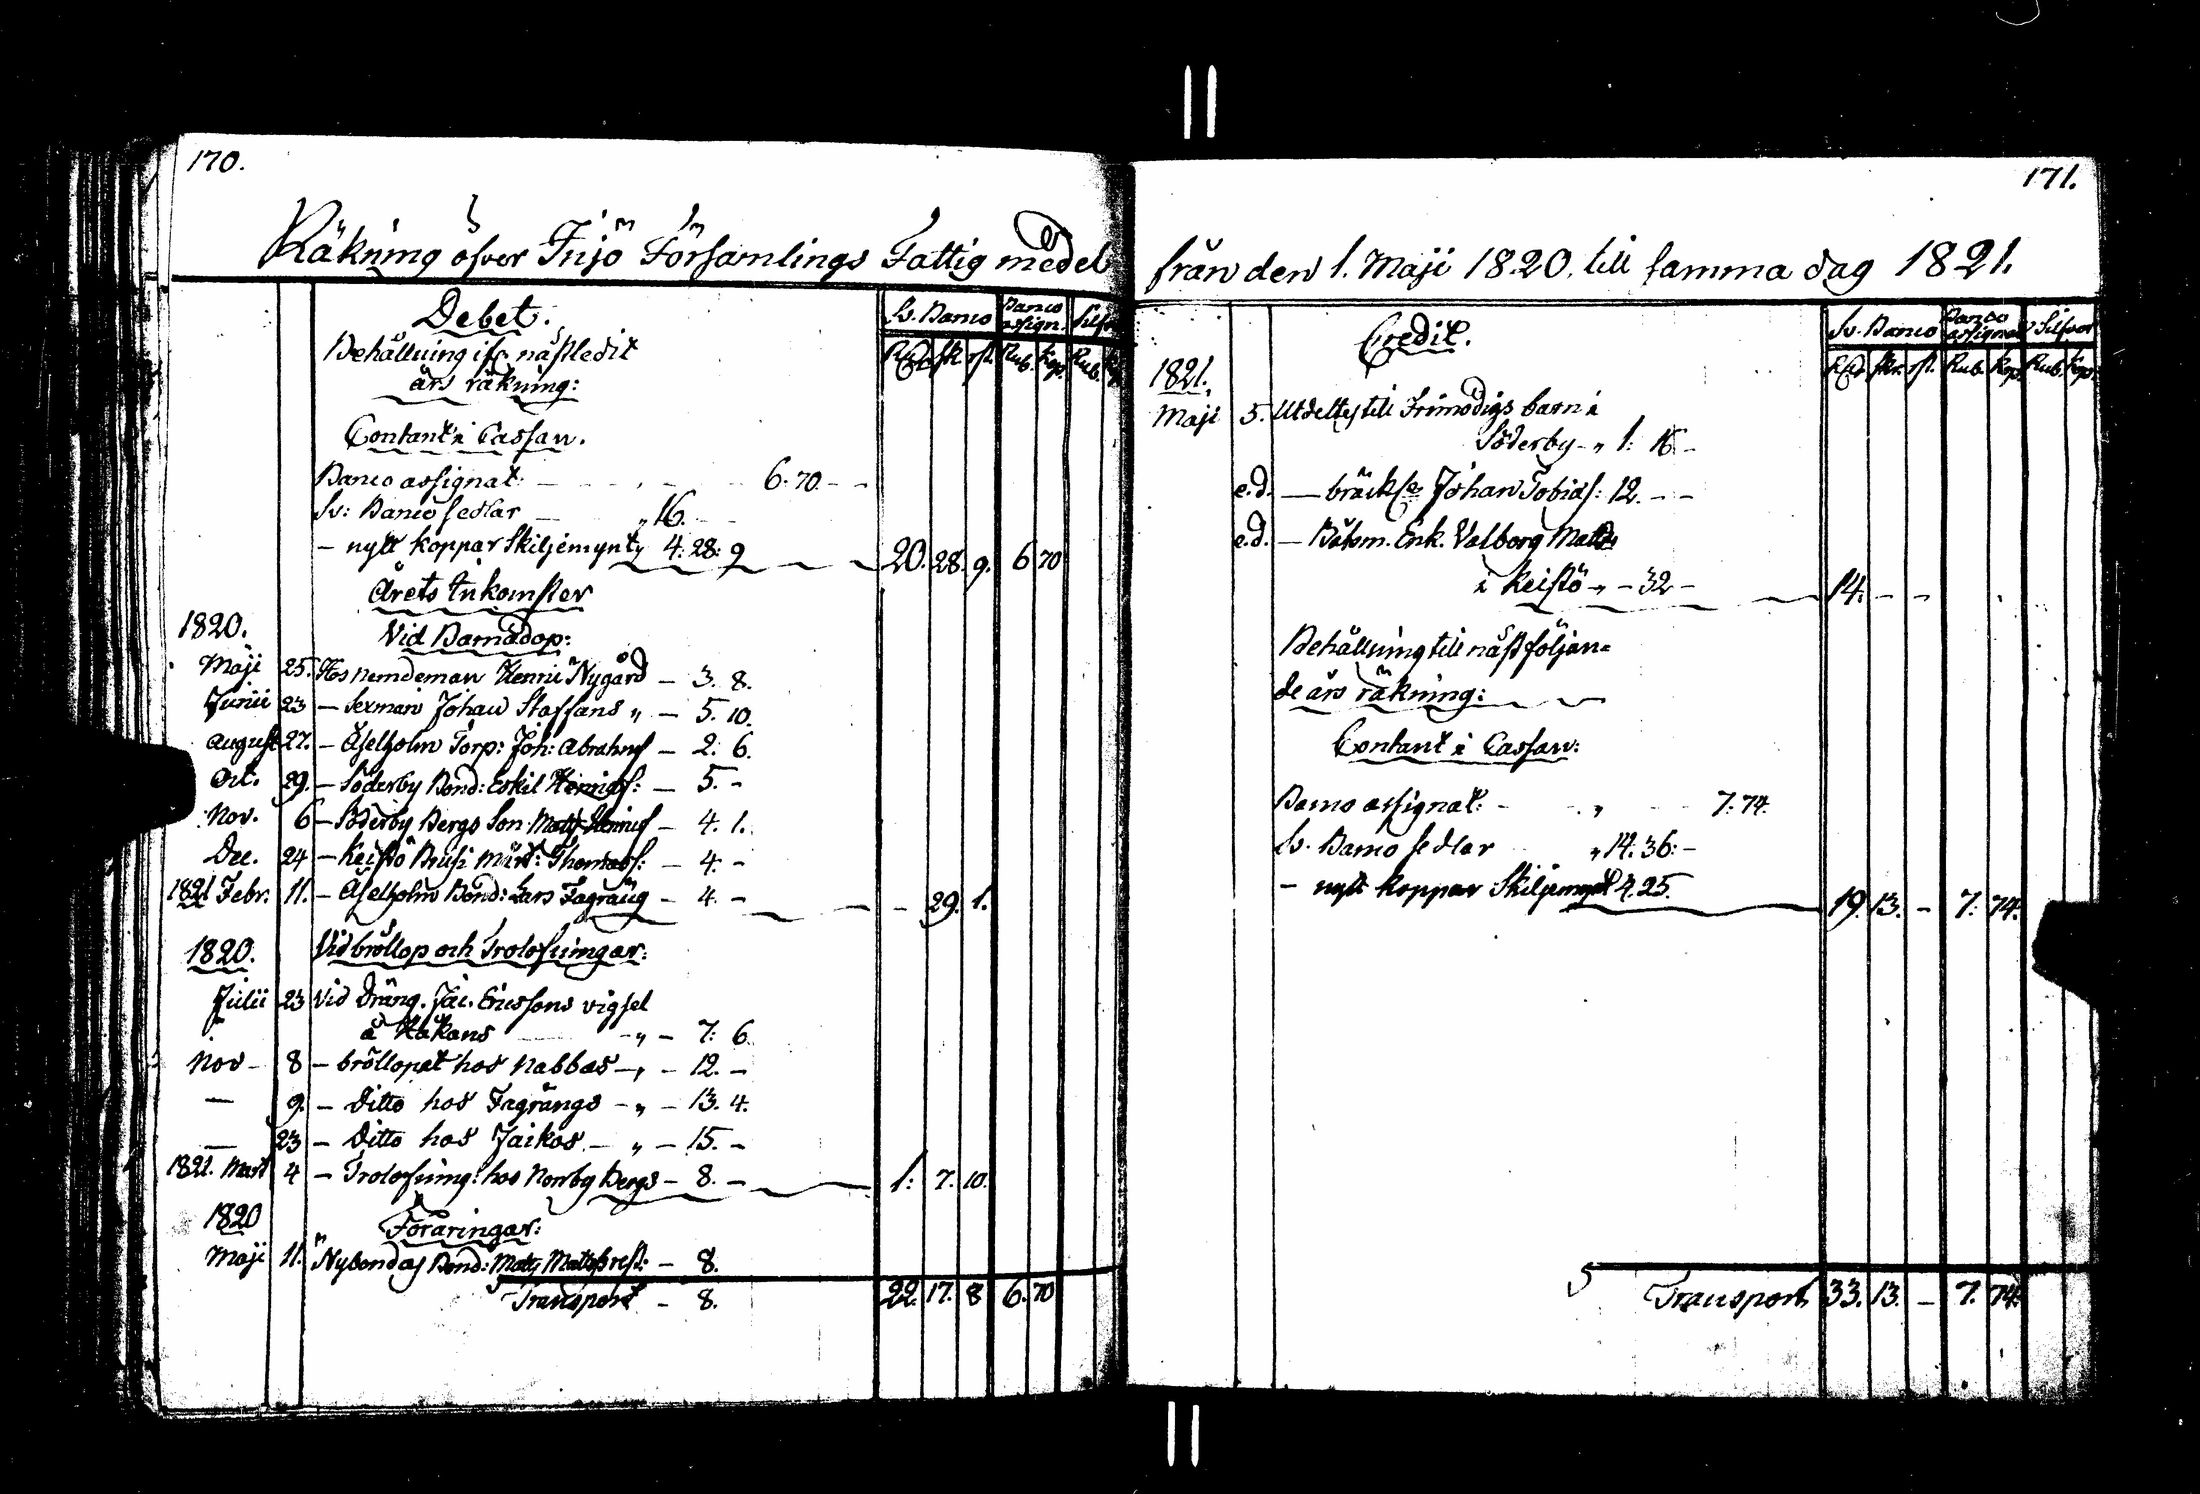 170.
Räkning öfver Inիö Församlings Fattig medel
Debet.
Sv. Banco
Banco assign.
Silfv
Rd sk rst. Rub. Kop. Rub.
Behållning ifr. näst ledit
års räkning:
Contant i Cassan.
Banco assignat: - - - 6. 70. - -
Sv: Banco sedlar - „ 16. - -
- nytt koppar Skiljemynt „ 4: 28: 9 20. 28. 9. 6 70
Årets Inkomster
1820. Vid Barnadop:
Maji 25. Hos nemdeman Henric Nygård - 3. 8.
Junii 23 - Sexman Johan Staffans „ - 5. 10.
August 27. - Åselholm Torp: Joh: Abrahms - 2. 6.
Oct. 29. - Söderby Bond: Eskil Henrics: - 5. -
Nov. 6 - Söderby Bergs Son Matts Henrics - 4. 1.
Dec. 24 - Keistö Brusi Mårt: Thomass: - 4. -
1821 Febr. 11. - Åselholm Bond: Lars Fagräng - 4. - - - 29. 1.
1820. Vid bröllop och Trolofningar:
Julii 23 Vid Dräng. Jac. Ericssons vigsel
å Håkans - „ - 7: 6
Nov - 8 - bröllopet hos Nabbas - „ - 12. -
— 9. - Ditto hos Fagrängs - „ - 13. 4.
— 23 - Ditto hos Jaikos - „ - 15. -
1821. Mart 4 - Trolofning: hos Norrby Bergs - 8. - 1: 7. 10.
1820 Föräringar:
Maji 11. Nybondas Bond: Matts Mattss rest: - 8.
Transport - 8. 22. 17. 8 6. 70
171.
från den 1. Maji 1820. till samma dag 1821.
Credit.
Sv. Banco
Banco assignat
Silfver
Rd skr. rst. Rub. Kop. Rub. Kop.
1821.
Maji 5. Utdeltes till Frimodigs barn i
Söderby - „ 1: 16 -
e.d. — bräckl. Johan Tobias: 12. - -
e.d. — Båtsm. Enk. Valborg Matts
i Keistö - „ - 32 - 14. - -
Behållning till näst följan=
de års räkning:
Contant i Cassan:
Banco assignat: - „ - 7. 74.
Sv. Banco sedlar „ 14. 36: -
- nytt koppar Skiljemynt 4. 25. 19. 13. - 7: 74.
Transport 33. 13. - 7. 74.